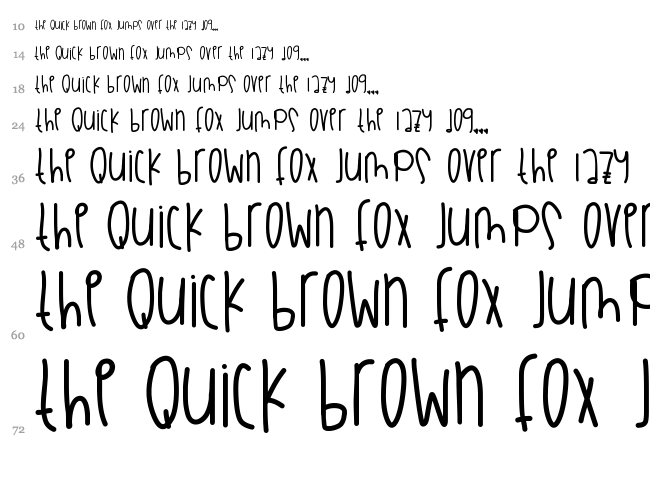 10 the Quick brown fox jumps over the lazy dog...
14 the Quick brown fox jumps over the lazy dog...
18 the Quick brown fox jumps over the lazy dog...
24 the Quick brown fox jumps over the lazy dog...
36 the Quick brown fox jumps over the lazy
48 the Quick brown fox jumps over
60 the Quick brown fox jump
72 the Quick brown fox j